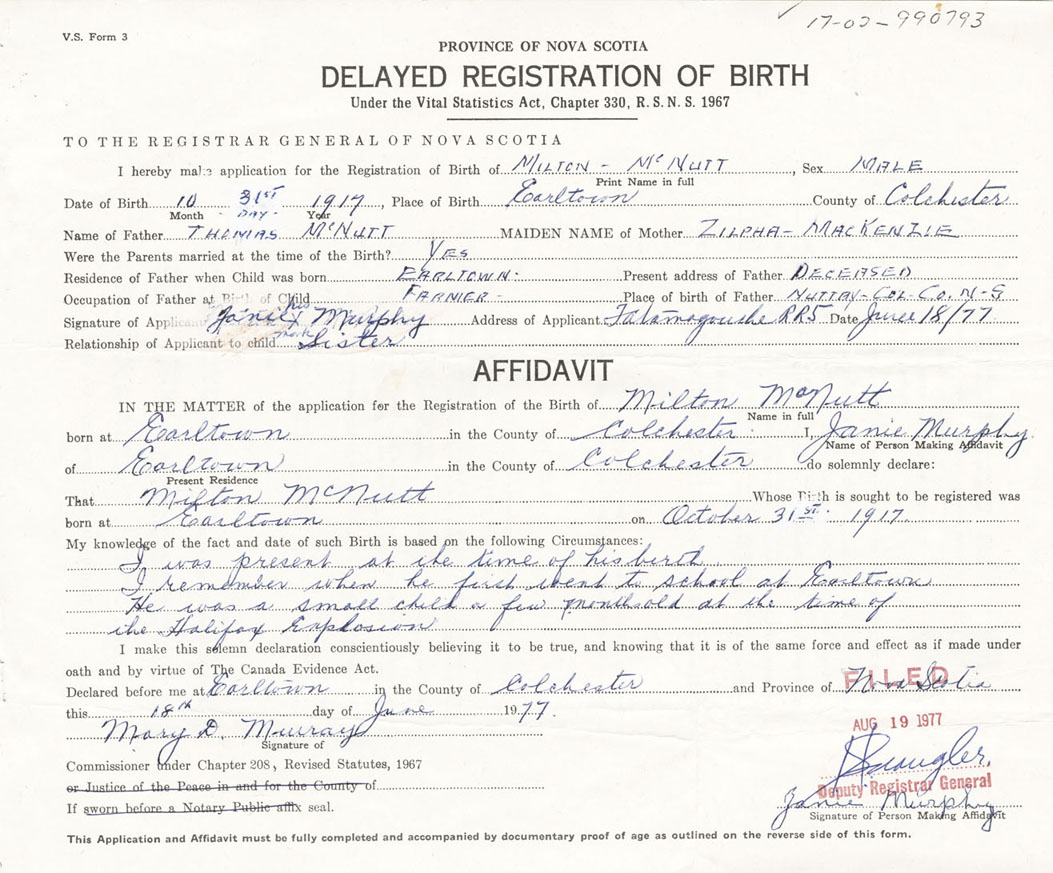 17-02-990793
V.S. Form 3
PROVINCE OF NOVA SCOTIA
DELAYED REGISTRATION OF BIRTH
Under the Vital Statistics Act, Chapter 330, R. S. N. S. 1967
TO THE REGISTRAR GENERAL OF NOVA SCOTIA
I hereby make application for the Registration of Birth of MILTON - McNUTT, Sex MALE
Print Name in full
Date of Birth 10 31ST 1917, Place of Birth Earltown County of Colchester
Month DAY Year
Name of Father THOMAS McNUTT MAIDEN NAME of Mother ZILPHA - MACKENZIE
Were the Parents married at the time of the Birth? YES
Residence of Father when Child was born EARLTOWN Present address of Father DECEASED
Occupation of Father at Birth of Child FARMER - Place of birth of Father NUTTBY - COL - CO. N-S
Signature of Applicant Janie x Murphy Address of Applicant Tatamagouche RR5 Date June 18/77
his
mark
Relationship of Applicant to child Sister
AFFIDAVIT
IN THE MATTER of the application for the Registration of the Birth of Milton McNutt
Name in full
born at Earltown in the County of Colchester I, Janie Murphy
Name of Person Making Affidavit
of Earltown in the County of Colchester do solemnly declare:
Present Residence
That Milton McNutt Whose Birth is sought to be registered was
born at Earltown on October 31st 1917
My knowledge of the fact and date of such Birth is based on the following Circumstances:
I was present at the time of his birth
I remember when he first went to school at Earltown
He was a small child a few months old at the time of
the Halifax Explosion
I make this solemn declaration conscientiously believing it to be true, and knowing that it is of the same force and effect as if made under
oath and by virtue of The Canada Evidence Act.
Declared before me at Earltown in the County of Colchester and Province of Nova Scotia
FILED
this 18th day of June 1977
AUG 19 1977
Mary D. Murray
Signature of
Commissioner under Chapter 208, Revised Statutes, 1967
or Justice of the Peace in and for the County of
Deputy Registrar General
If sworn before a Notary Public affix seal.
Janie Murphy
Signature of Person Making Affidavit
This Application and Affidavit must be fully completed and accompanied by documentary proof of age as outlined on the reverse side of this form.